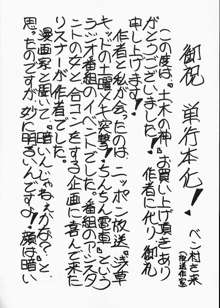 御祝 単行本化！
ベン村さ来
(放送作家)
この度は、「土木の神」お買い上げ頂きあり
がとうございました！作者に代り御礼
申し上げます！
作者と私が会ったのは、ニッポン放送「浅草
キッドの土曜大突撃！ちんちん電車」という
ラジオ番組のイベントでした。番組のアシスタ
ントの女と合コンをする企画に喜んで来た
リスナーが作者でした。
漫画家と聞いて「暗いんじゃねぇかな？」と
思ったのですが妙に明るいんです！顔は暗い